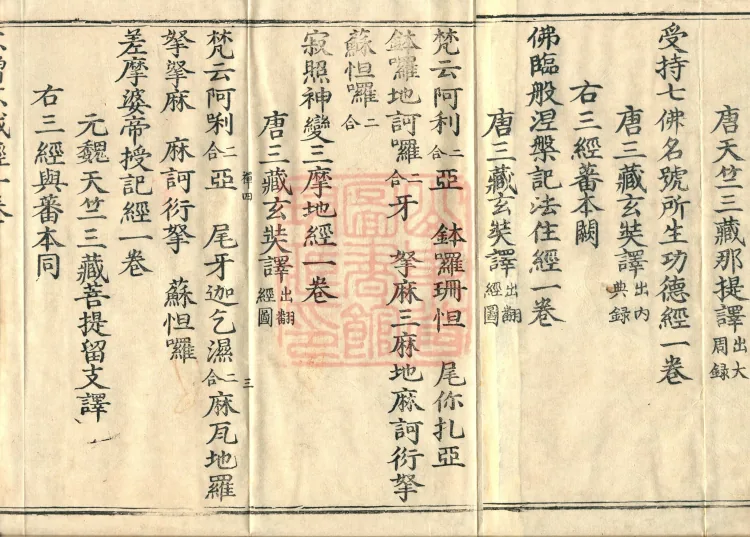 唐天竺三藏那提譯出大周録
受持七佛名號所生功德經一卷
唐三藏玄奘譯出内典録
右三經蕃本闕
佛臨般涅槃記法住經一卷
唐三藏玄奘譯出翻經圖
梵云阿利二合亞 鉢囉珊怛 尾你扎亞
鉢囉地訶囉二合牙 拏麻三麻地麻訶衍拏
蘇怛囉二合
寂照神變三摩地經一卷
唐三藏玄奘譯出翻經圖
梵云阿唎二合亞 尾牙迦乞濕二合麻瓦地羅
拏拏麻 麻訶衍拏 蘇怛囉
差摩婆帝授記經一卷
元魏天竺三藏菩提留支譯
右三經與蕃本同